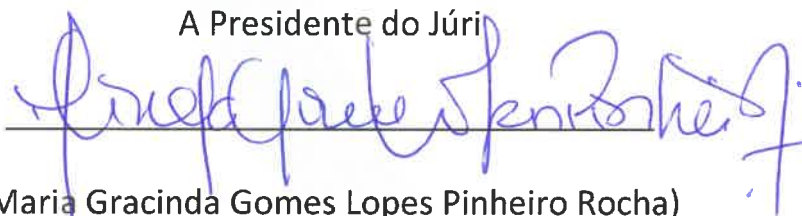 A Presidente do Júri
Maria Gracinda Gomes Lopes Pinheiro Rocha)